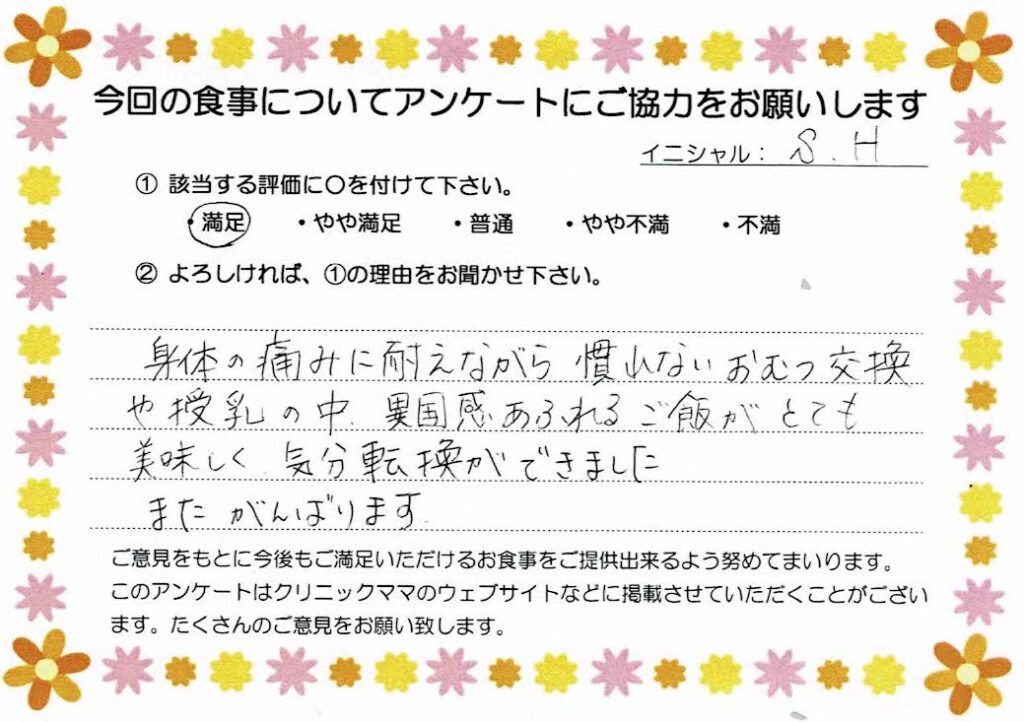 今回の食事についてアンケートにご協力をお願いします
イニシャル： S.H
① 該当する評価に〇を付けて下さい。
・満足 ・やや満足 ・普通 ・やや不満 ・不満
② よろしければ、①の理由をお聞かせ下さい。
身体の痛みに耐えながら 慣れないおむつ交換
や授乳の中、異国感あふれるご飯がとても
美味しく、気分転換ができました
また がんばります。
ご意見をもとに今後もご満足いただけるお食事をご提供出来るよう努めてまいります。
このアンケートはクリニックママのウェブサイトなどに掲載させていただくことがござい
ます。たくさんのご意見をお願い致します。